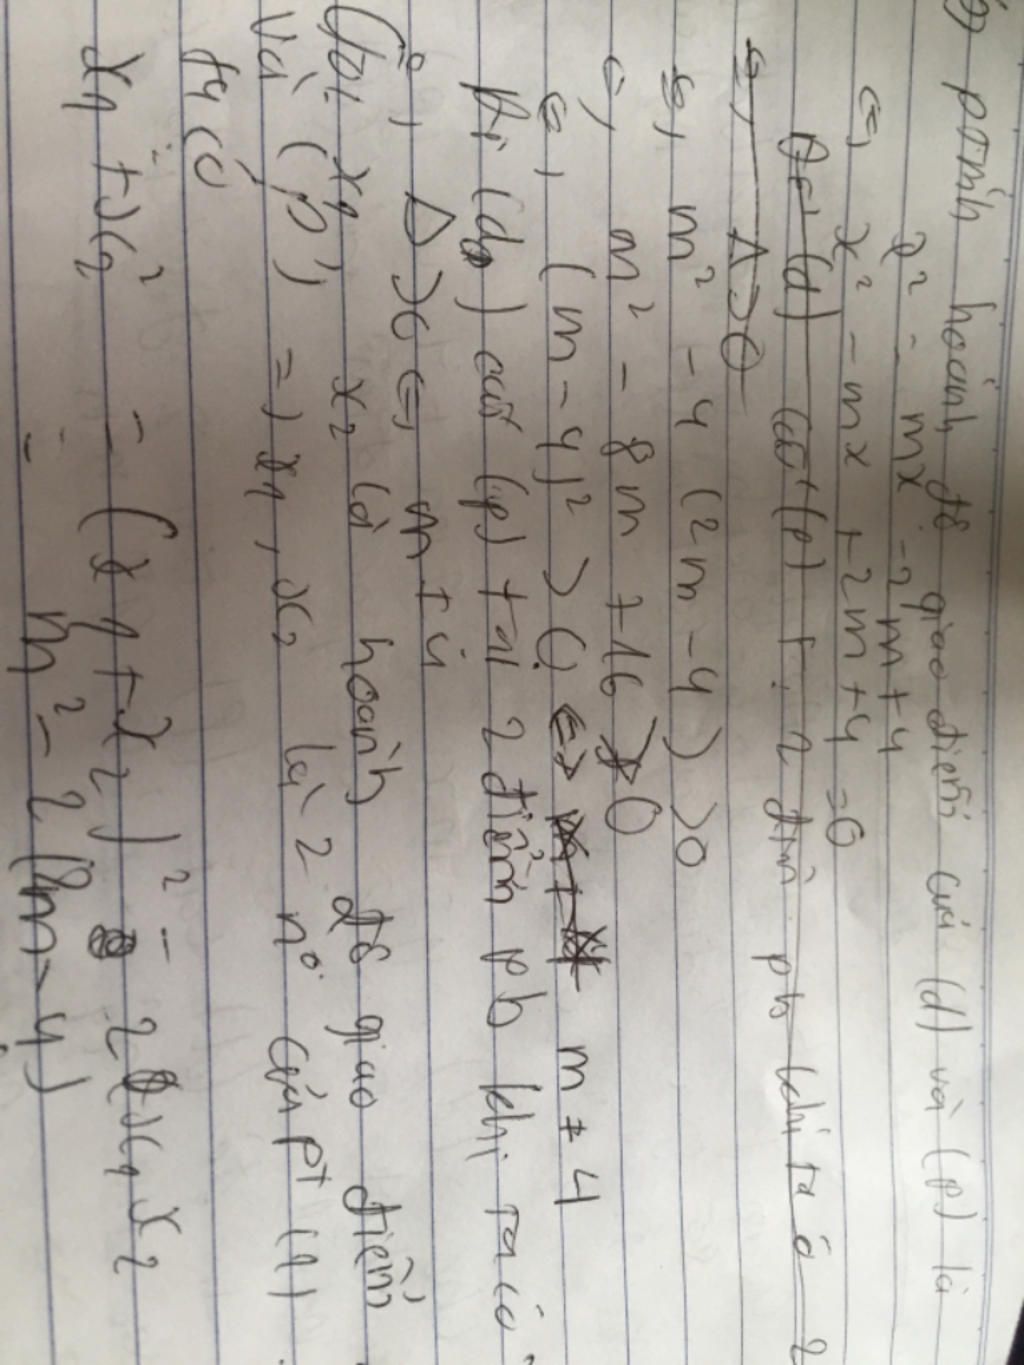 b) ptrình hoành độ giao điểm của (d) và (p) là
x² = mx - 2m + 4
⇔, x² - mx + 2m + 4 = 0
Để (d) cắt (p) tại 2 điểm pb khi ta có 2
⇔, Δ > 0
⇔, m² - 4 (2m - 4) > 0
⇔, m² - 8m + 16 > 0
⇔, (m - 4)² > 0 ⇔ m ≠ 4
Để (d) cắt (p) tại 2 điểm pb khi ta có
⇔, Δ > 0 ⇔, m ≠ 4
Gọi x₁ x₂ là hoành độ giao điểm
Và (p) ⇒ x₁, x₂ là 2 n° của pt (1)
ta có
x₁² + x₂² = (x₁ + x₂)² - 2 x₁ x₂
= m² - 2 (2m - 4)